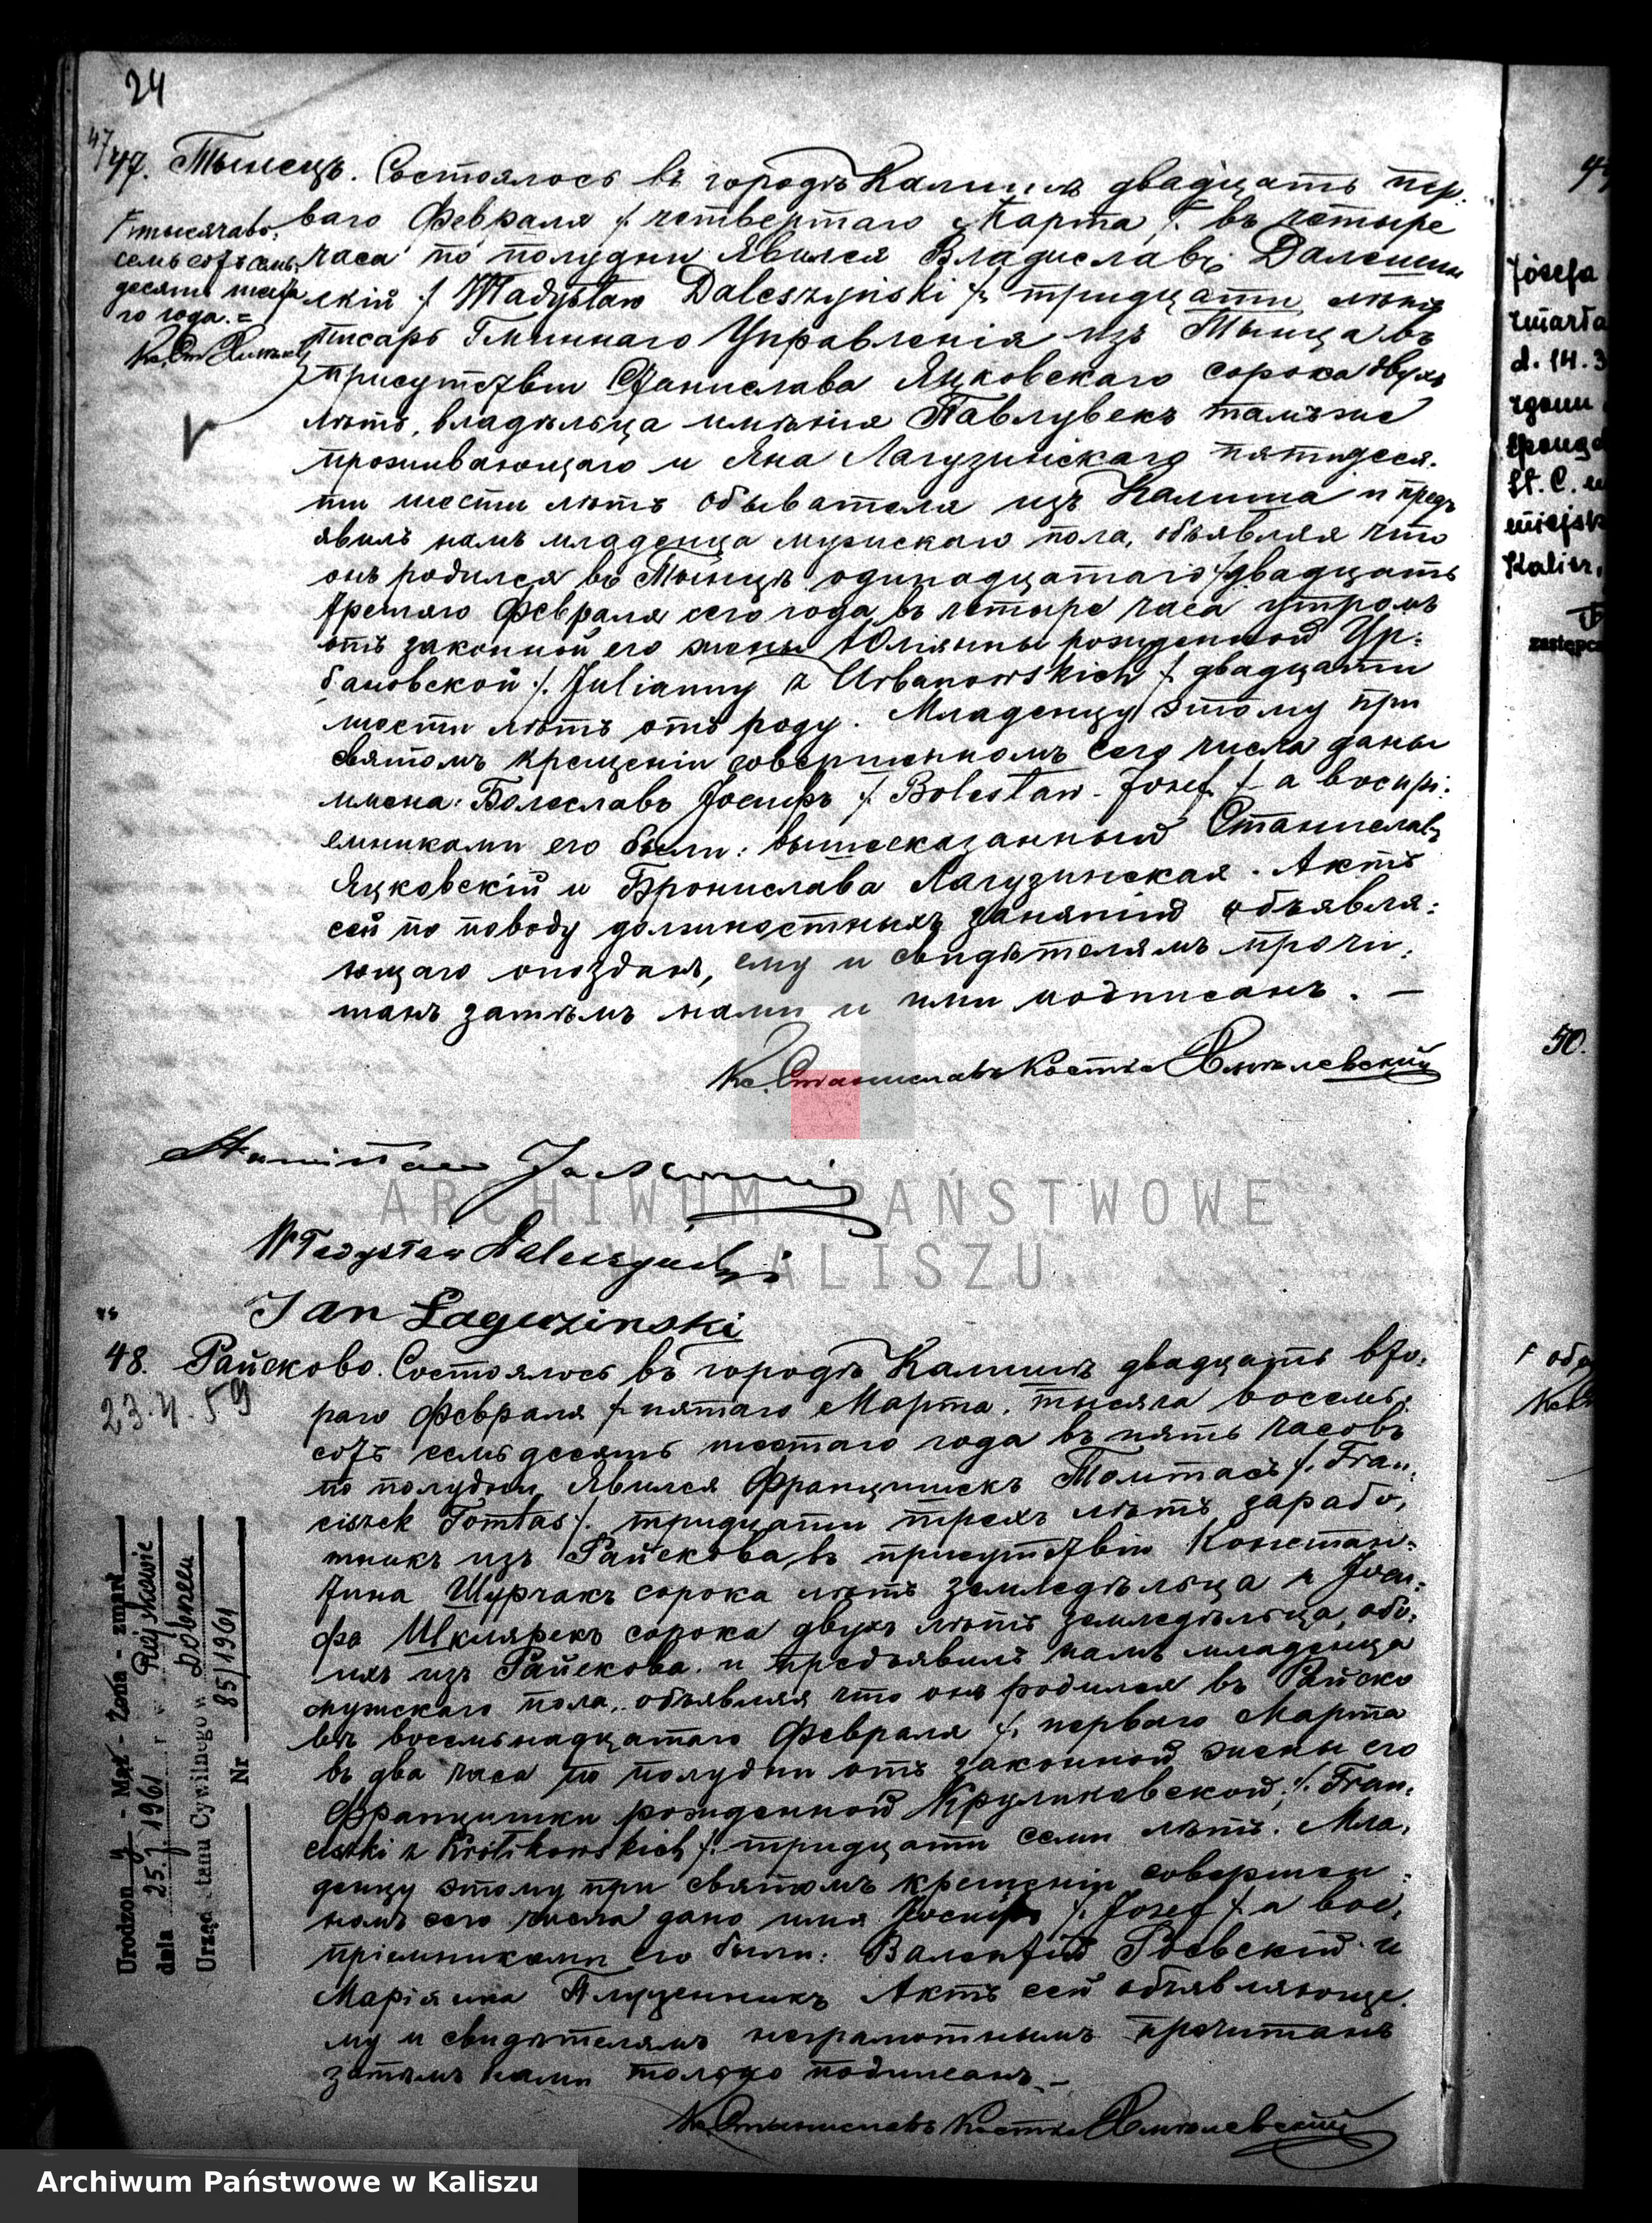 24
47/47. Тынецъ. Состоялось въ городѣ Калишѣ двадцать пер-
ваго Февраля /: четвертаго Марта /: въ четыре
часа по полудни явился Владиславъ Далешин
скій /: Władysław Daleszyński /: тридцати лѣтъ
писарь Гминнаго Управленія изъ Тынца въ
присутствіи Станислава Яцковскаго сорока двухъ
лѣтъ, владѣльца имѣнія Павлувекъ тамъ же
проживающаго и Яна Лагузинскаго пятидеся-
ти шести лѣтъ обывателя изъ Калиша и предъ
явилъ намъ младенца мужскаго пола, объявляя что
онъ родился въ Тынцѣ одинадцатаго / двадцать
третяго Февраля сего года въ четыре часа утромъ
отъ законной его жены Юліянны рожденной Ур-
бановской /: Julianny z Urbanowskich /: двадцати
шести лѣтъ отъ роду. Младенцу этому при
святомъ крещеніи совершенномъ сего числа даны
имена: Болеславъ Іосифъ /: Bolesław-Josef /: а воспрі-
емниками его были: вышесказанный Станиславъ
Яцковскій и Бронислава Лагузинская. Актъ
сей по поводу должностныхъ занятій объявля-
ющаго опозданъ, ему и свидѣтелямъ прочи-
танъ затѣмъ нами и ими подписанъ. —
Кс. Станиславъ Костка Хмѣлевский
тысяча во-
семь сотъ семь
десять шеста
го года. =
Кс. Ст.
Stanisław Jackowski
Władysław Daleszyński
Jan Łaguzinski
48. Райсково. Состоялось въ городѣ Калишѣ двадцать вто-
раго Февраля /: пятаго Марта. тысяча восемь-
сотъ семьдесять шестаго года въ пять часовъ
по полудни, явился Францишекъ Томтасъ /: Fran-
ciszek Tomtas /: тридцати трехъ лѣтъ зарабо-
тникъ изъ Райскова въ присутствіи Констан-
тина Шурчакъ сорока лѣтъ земледѣльца и Іоси-
фа Шклярекъ сорока двухъ лѣтъ земледѣльца, обо-
ихъ изъ Райскова. и предъявилъ намъ младенца
мужскаго пола, объявляя что онъ родился въ Райско
вѣ восемьнадцатаго Февраля /: перваго Марта
въ два часа по полудни отъ законной жены его
Францишки рожденной Круликовской, /: Fran-
ciszki z Królikowskich /: тридцати семи лѣтъ. Мла-
денцу этому при святомъ крещеніи совершен-
номъ сего числа дано имя Іосифъ /: Josef /: а вос-
пріемниками его были: Валентій Роевскій и
Маріянна Актъ сей объявляюще-
му и свидѣтелямъ неграмотнымъ прочитанъ
затѣмъ нами только подписанъ. —
Кс. Станиславъ Костка Хмѣлевский
23.4.59
Urodzony - Mąż - Żona - zmarł
dnia 25.7.1961 r. w Rajskowie
Urząd Stanu Cywilnego w Dobrzecu
Nr 85/1961
Józefa
zmarła
d. 14.3
zgonu
U. S. C.
miejsk
Kalisz,
50.
ARCHIWUM PAŃSTWOWE
W KALISZU
Archiwum Państwowe w Kaliszu